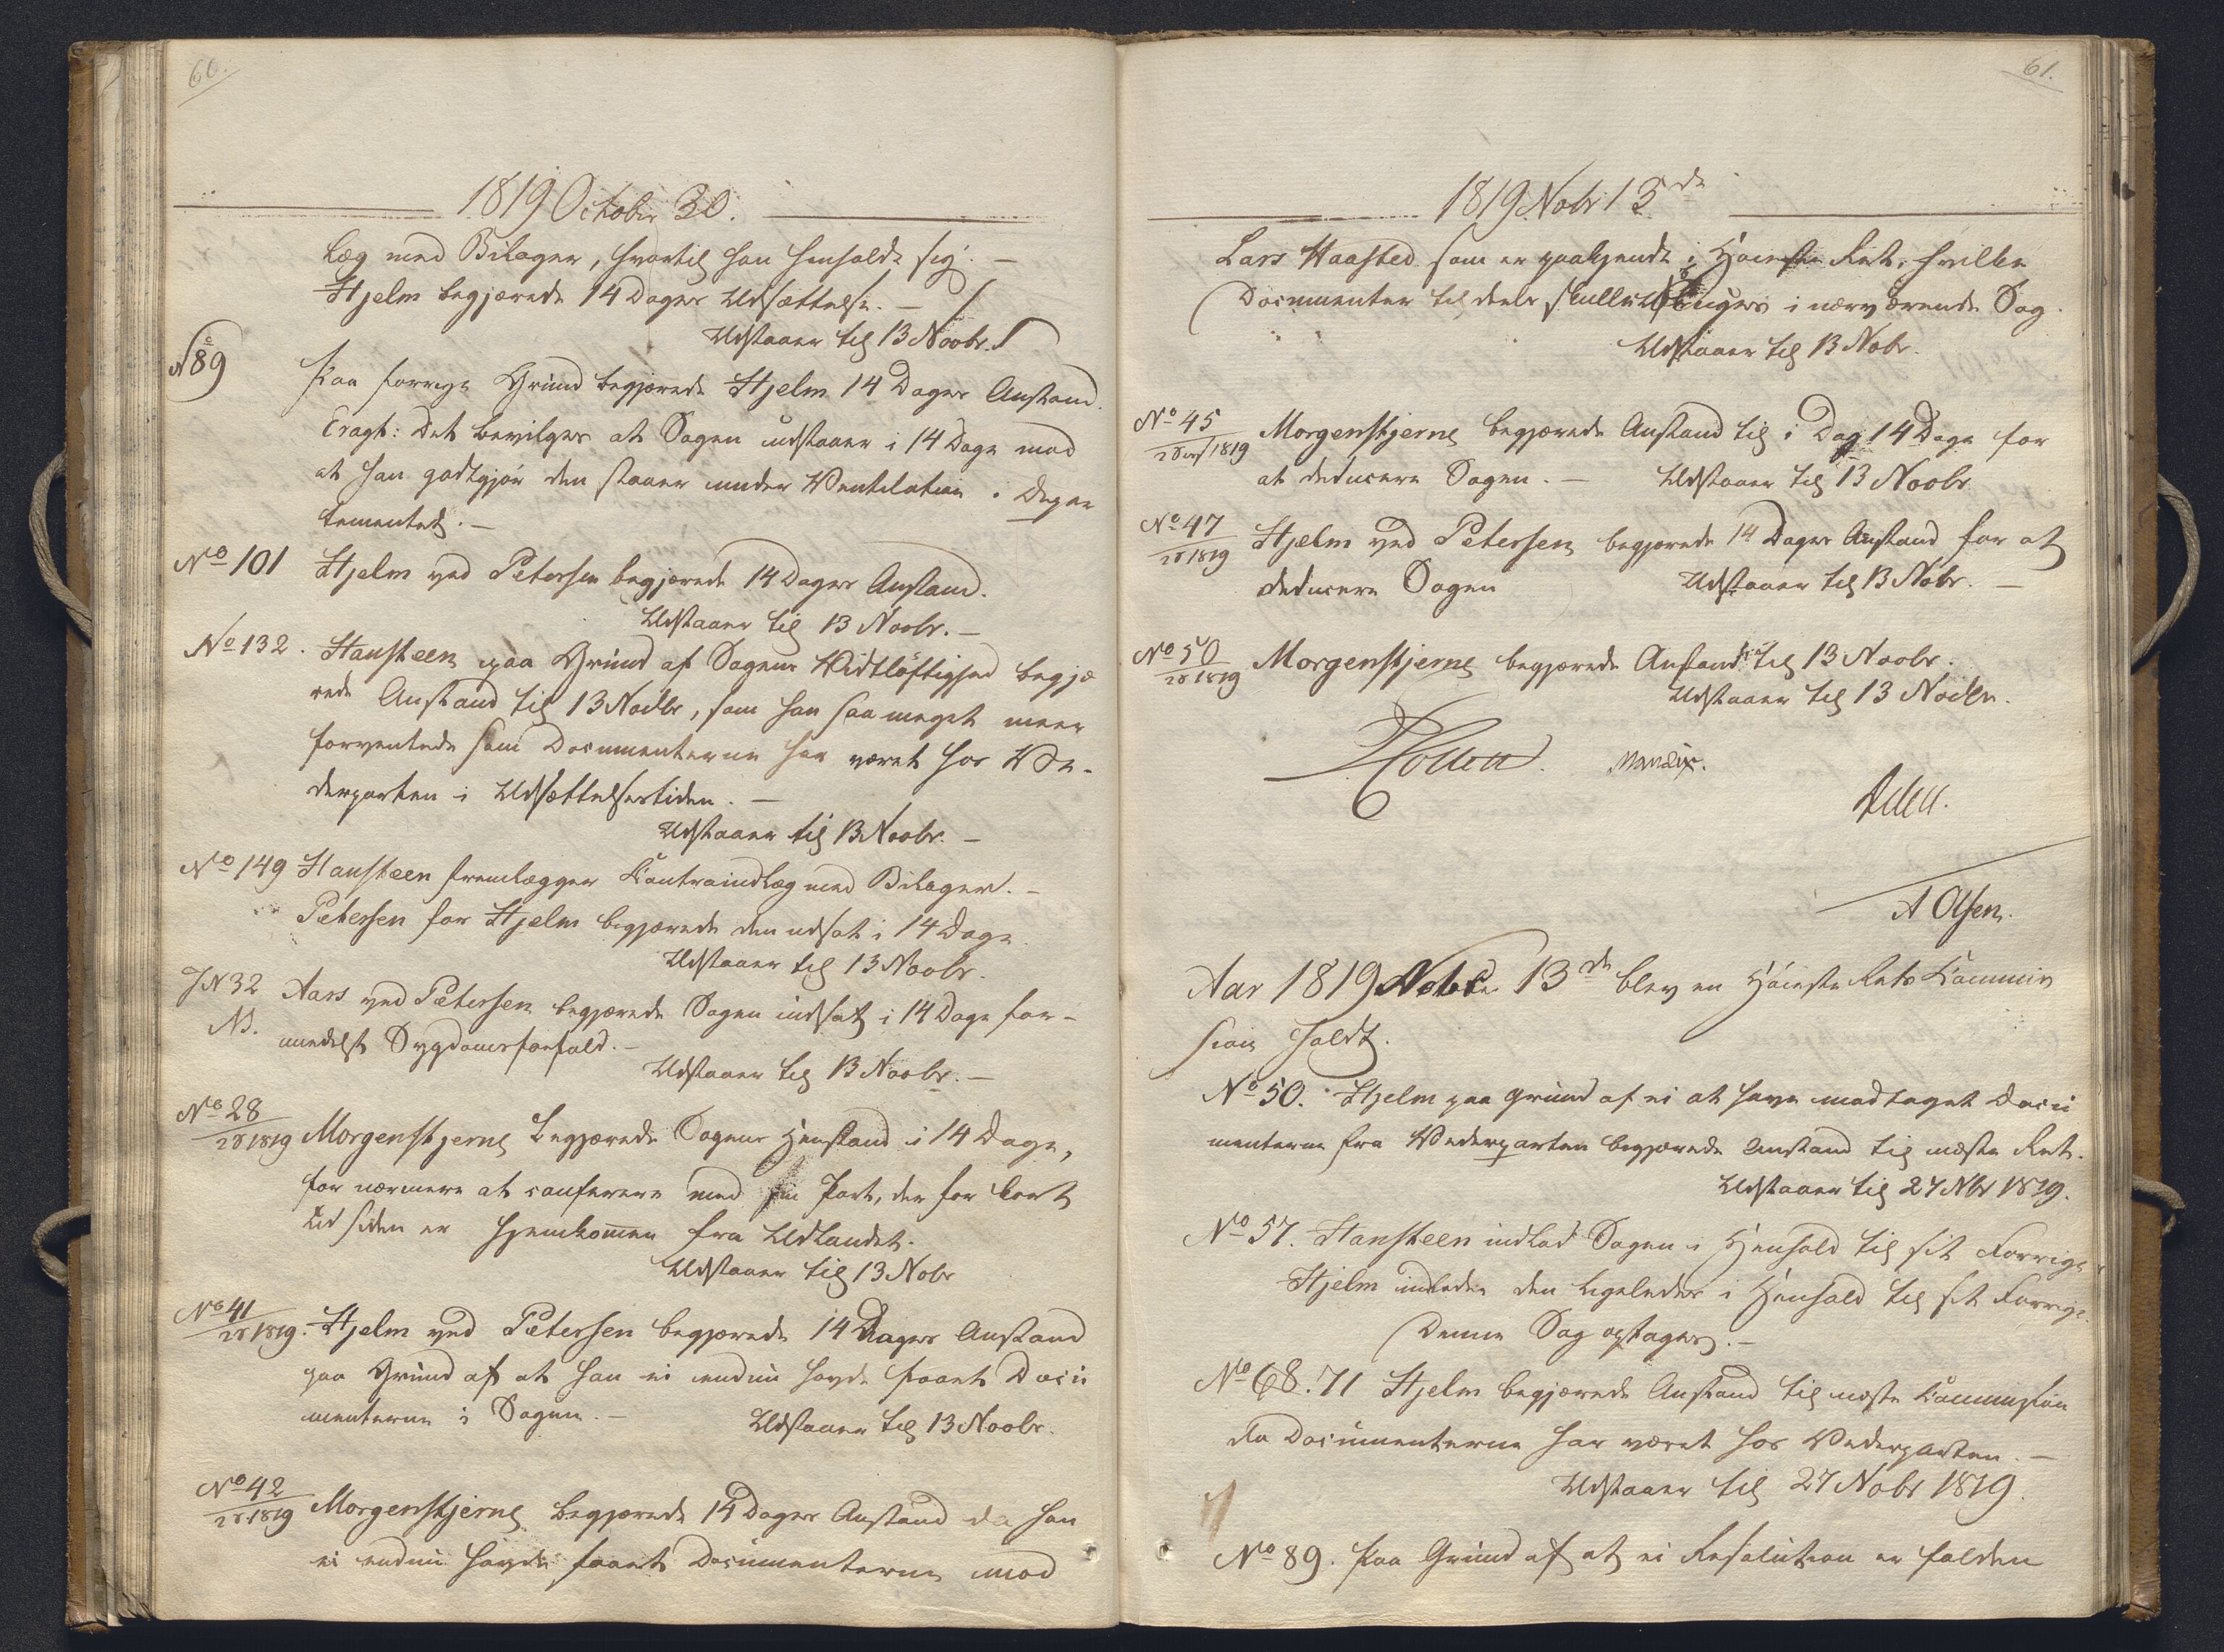 60.
1819 October 30.
læg med Bilager, hvortil han henholdt sig. –
Hjelm begjærede 14 Dagers Udsættelse. –
Udstaaer til 13 Novbr.
No 89
Paa forrige Grund begjærede Hjelm 14 Dagers Anstand.
Eragt: Det bevilges at Sagen udstaaer i 14 Dage mod
at han godtgjør den staaer under Ventilation i Depar
tementet. –
No 101 Hjelm ved Petersen begjærede 14 Dagers Anstand.
Udstaaer til 13 Novbr. –
No 132. Hansteen paa Grund af Sagens Vidtløftighed begjæ
rede Anstand til 13 Novbr, som han saa meget meer
forventede som Documenterne har været hos Ve-
derparten i Udsættelsestiden. –
Udstaaer til 13 Novbr. –
No 149 Hansteen fremlægger Contraindlæg med Bilager. –
Petersen for Hjelm begjærede den udsat i 14 Dage.
Udstaaer til 13 Novbr.
JN 32 Aars ved Petersen begjærede Sagen udsat i 14 Dage for-
NS. medelst Sygdomsforfald. –
Udstaaer til 13 Novbr. –
No 28
1819 Morgenstjerne begjærede Sagens Henstand i 14 Dage,
for nærmere at conferere med sin Part, der for kort
Tid siden er hjemkommen fra Udlandet.
Udstaaer til 13 Nobr
No 41
1819. Hjelm ved Petersen begjærede 14 Dagers Anstand
paa Grund af at han ei endnu havde faaet Docu
menterne i Sagen. – Udstaaer til 13 Novbr.
No 42
1819 Morgenstjerne begjærede 14 Dagers Anstand da han
ei endnu havde faaet Documenterne mod
61.
1819 Nobr 13de
Lars Haasted som er paakjendt i Høieste Ret, hvilke
Documenter til deels skulle bruges i nærværende Sag.
Udstaaer til 13 Nobr.
No 45
1819 Morgenstjerne begjærede Anstand til i Dag 14 Dage for
at deducere Sagen. – Udstaaer til 13 Novbr
No 47
1819 Hjelm ved Petersen begjærede 14 Dagers Anstand for at
deducere Sagen Udstaaer til 13 Nobr. –
No 50
1819 Morgenstjerne begjærede Anstand til 13 Novbr.
Udstaaer til 13 Novbr.
Mandix.
A Olsen.
Aar 1819 Novbr 13de blev en Høieste Rets Commis
sion holdt.
No 50. Hjelm paa Grund af ei at have modtaget Docu
menterne fra Vederparten begjærede Anstand til næste Ret.
Udstaaer til 27 Nbr 1819.
No 57. Hansteen indlod Sagen i Henhold til sit Forrige.
Hjelm indlod den ligeledes i Henhold til sit Forrige.
Denne Sag optages. –
No 68. 71 Hjelm begjærede Anstand til næste Commission
da Documenterne har været hos Vederparten. –
Udstaaer til 27 Nobr 1819.
No 89. Paa Grund af at ei Resolution er falden